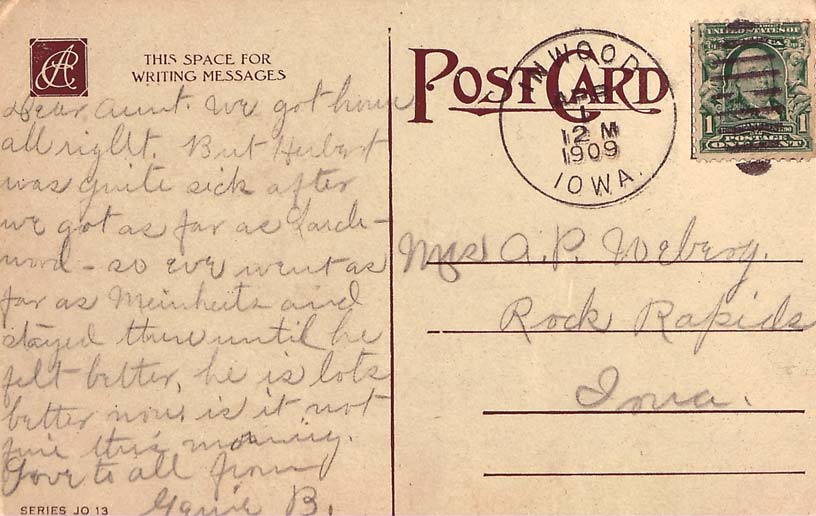 THIS SPACE FOR
WRITING MESSAGES
Dear Aunt. We got home
all right. But Herbert
was quite sick after
we got as far as Larch-
wood - so we went as
far as Meinherts and
stayed there until he
felt better, he is lots
better now. is it not
fine this morning.
Love to all from
B.
SERIES JO 13
POST CARD
INWOOD
APR
1
12 M
1909
IOWA.
UNITED STATES OF
1 1
POSTAGE
ONE CENT
Mrs A. P. Weberg.
Rock Rapids
Iowa.